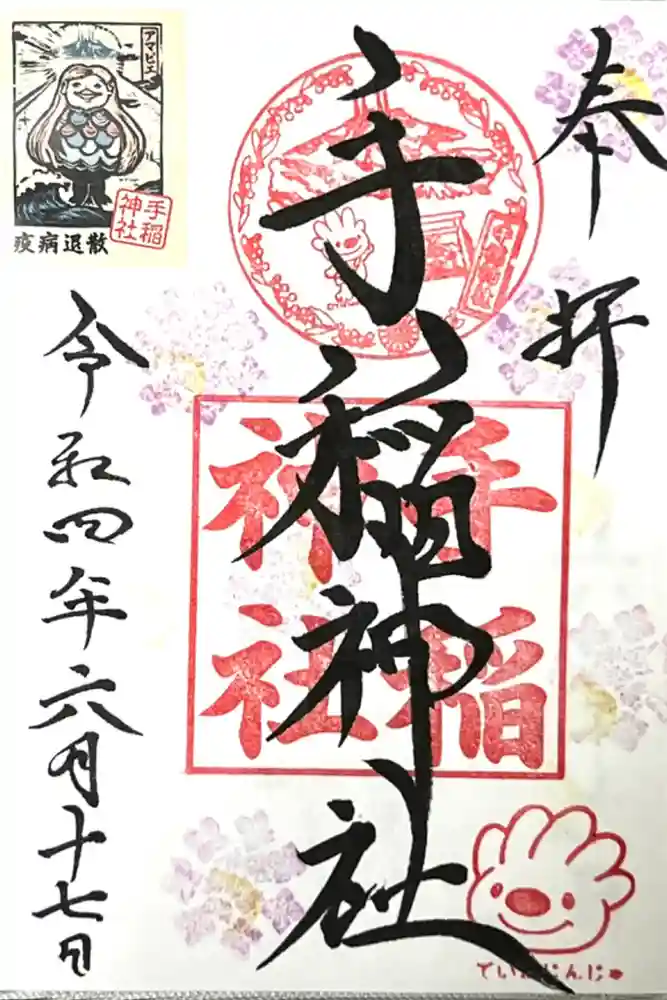 奉拝
手稲神社
手稲
神社
令和四年六月十七日
アマビエ
疫病退散
手稲
神社